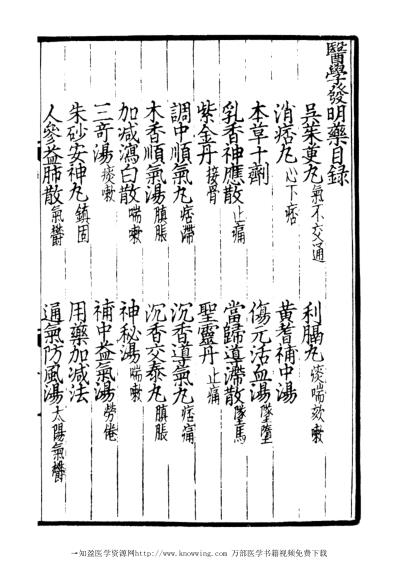 醫學發明藥目錄
吳茱萸丸氣不交通
利膈丸痰喘欬嗽
消痞丸心下痞
黃蓍補中湯
本草十劑
傷元活血湯墜墮
乳香神應散止痛
當歸導滯散墜馬
紫金丹接骨
聖靈丹止痛
調中順氣丸痞滯
沉香導氣丸痞痛
木香順氣湯䐜脹
沉香交泰丸䐜脹
加減瀉白散喘嗽
神秘湯喘嗽
三奇湯痰嗽
補中益氣湯勞倦
朱砂安神丸鎮固
用藥加減法
人參益肺散氣鬱
通氣防風湯太陽氣鬱
一知盈医学资源网http://www.knowing.com 万部医学书籍视频免费下载